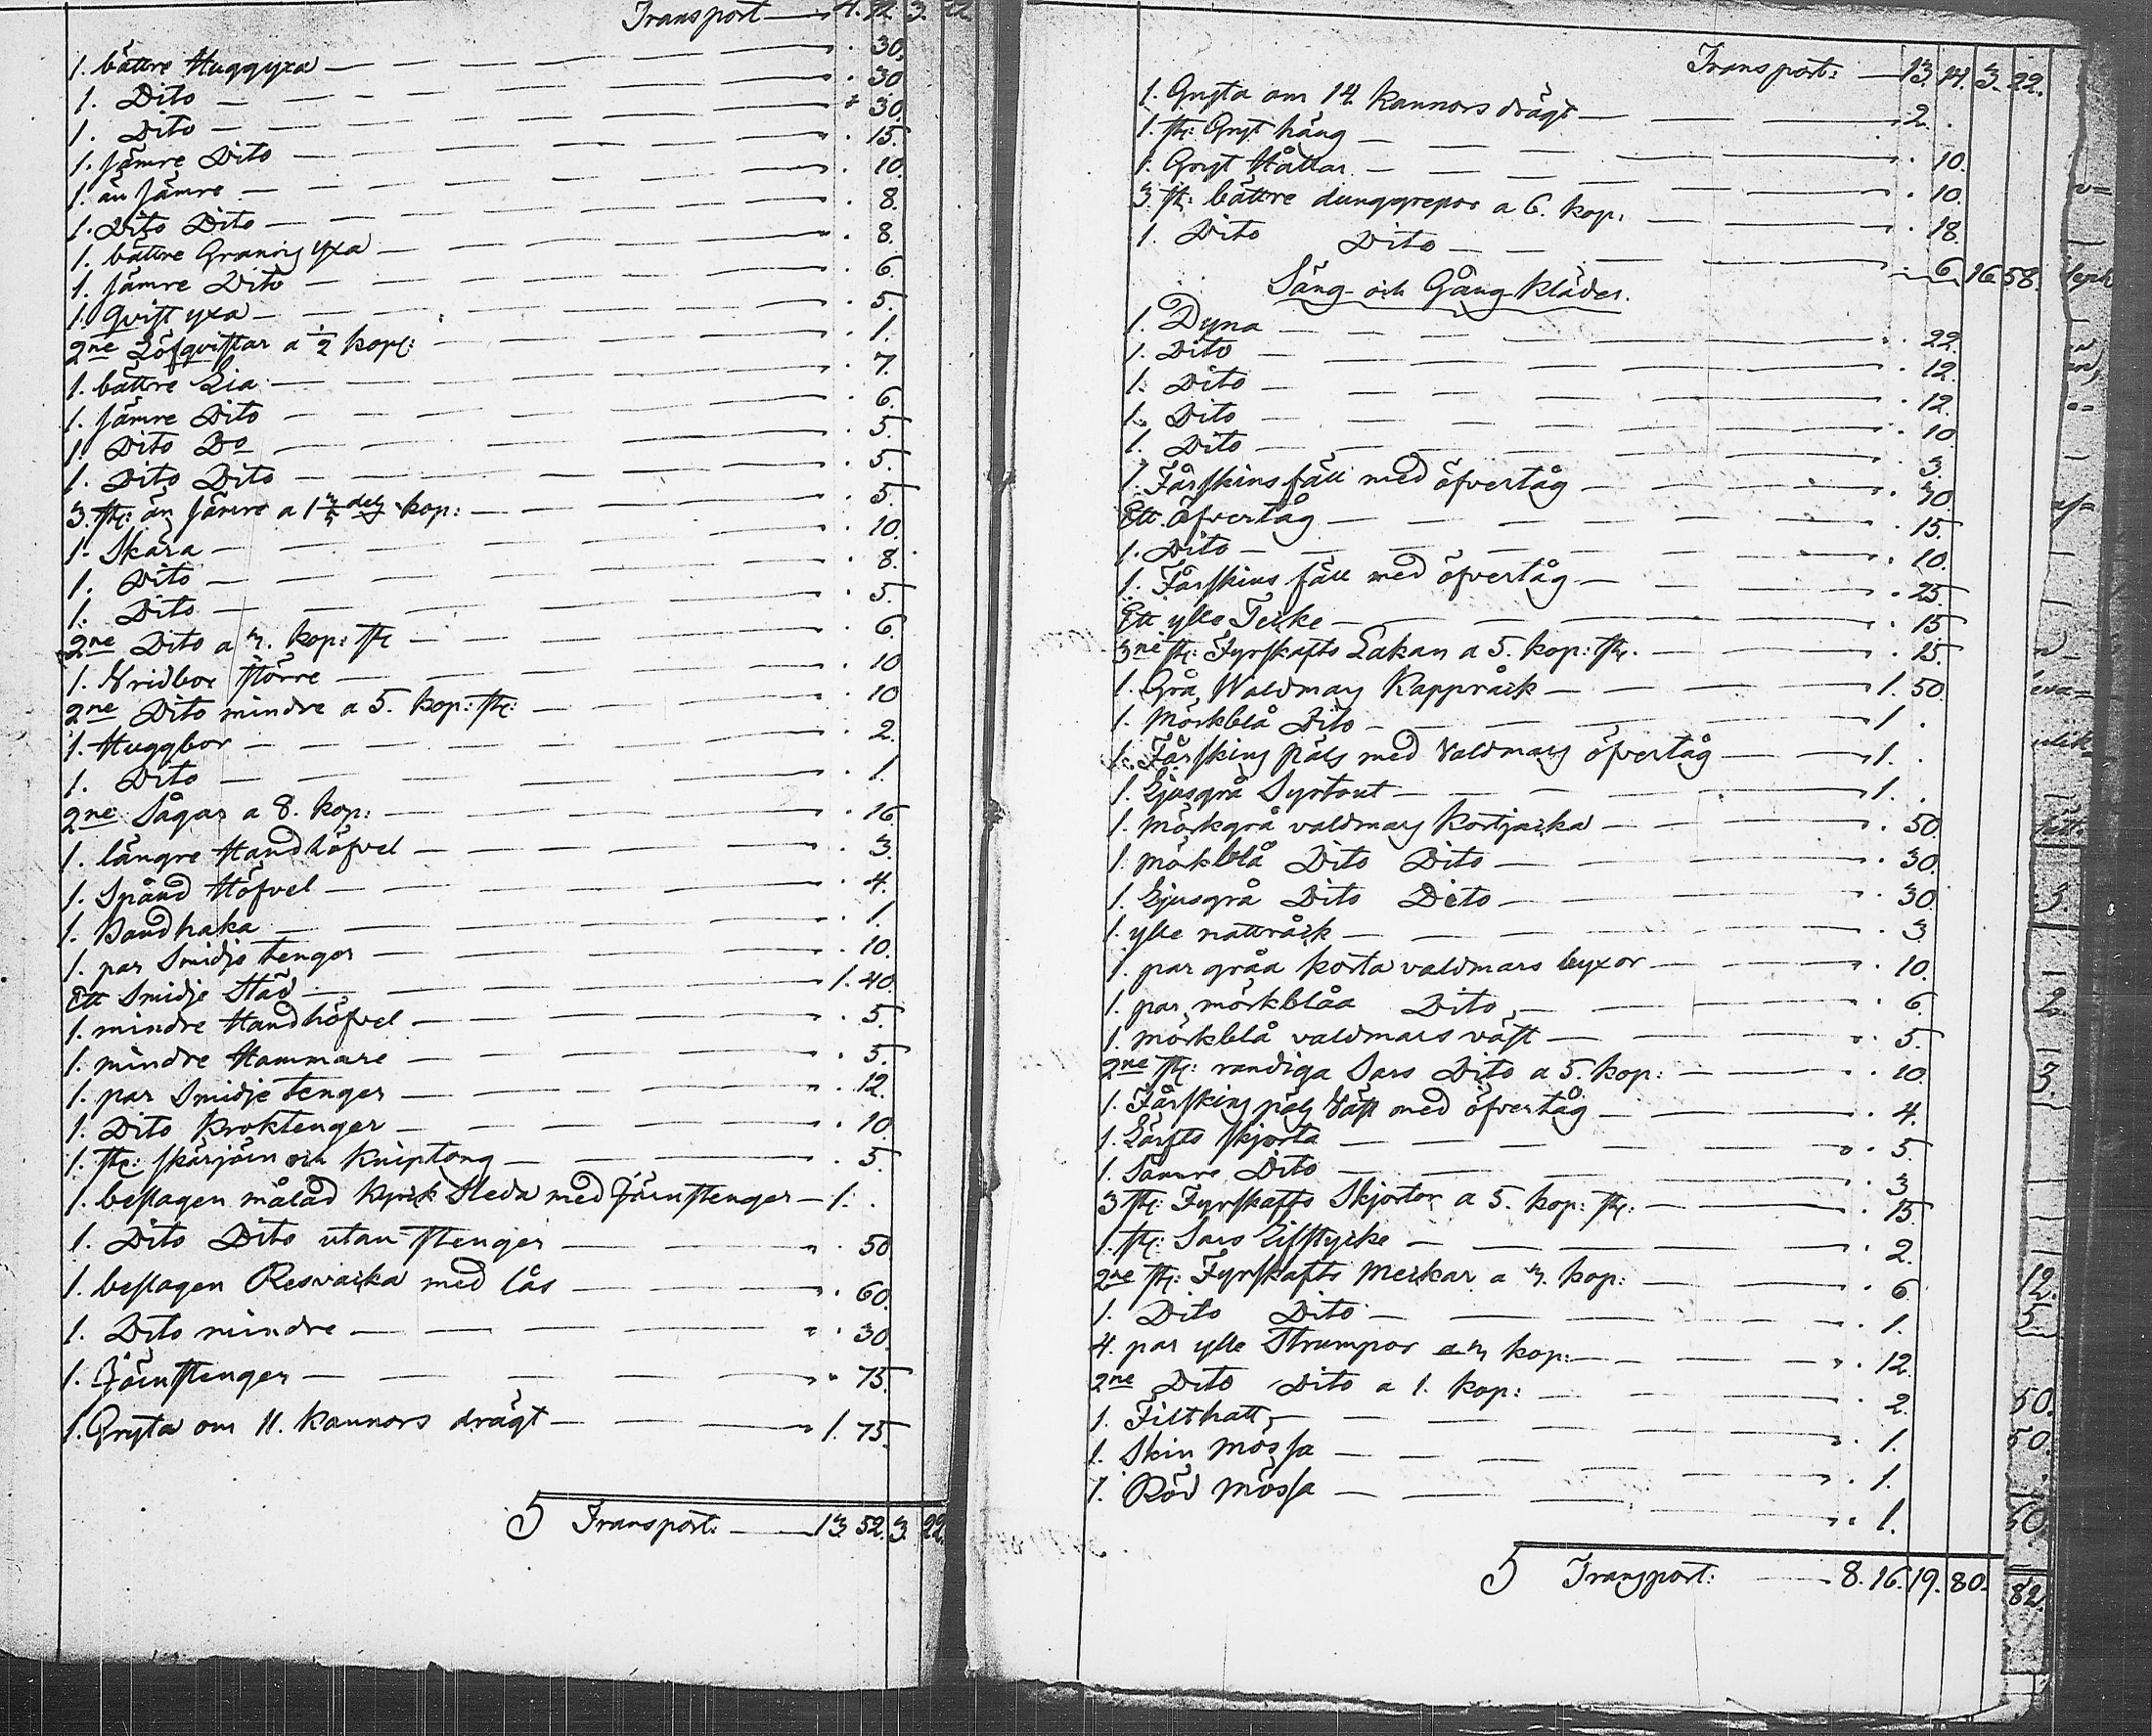 Transport — 4. 92. 3. 22.
1. bättre Huggyxa — . 30.
1. Dito — . 30
1. Dito — . 30.
1. sämre Dito — . 15.
1. än sämre — . 10.
1. Dito Dito — . 8.
1. bättre Graning yxa — . 8.
1. sämre Dito — . 6.
1. Qvist yxa — . 5.
2ne Löfqvistar a 1/2 kop: — . 1.
1. bättre Lia — . 7.
1. sämre Dito — . 6.
1. Dito Do — . 5.
1. Dito Dito — . 5.
3. st: än sämre a 1 kop: — . 5.
1. Skära — . 10.
1. Dito — . 8.
1. Dito — . 5.
2ne Dito a 3. kop: st — . 6.
1. Vridbor större — . 10
2ne Dito mindre a 5. kop: st: — . 10
1. Huggbor — . 2.
1. Dito — . 1.
2ne Sågar a 8. kop: — . 16.
1. längre Handhöfvel — . 3.
1. Spånd Höfvel — . 4.
1. Bandhaka — . 1.
1. par Smidje tenger — . 10.
Ett Smidje Städ — 1. 40.
1. mindre Handhöfvel — . 5.
1. mindre Hammare — . 5.
1. par Smidje tenger — . 12.
1. Dito Kroktenger — . 10.
1. st: skärjärn och Kniptong — . 5.
1. beslagen målad Kyrk Sleda med Järnstenger — 1. .
1. Dito Dito utan stenger — . 50
1. beslagen Resvacka med lås — . 60.
1. Dito mindre — . 30.
1. Järnstenger — . 75.
1. Gryta om 11. kannors drägt — 1. 75.
5 Transport: — 13. 52. 3. 22.
Transport: — 13. 14. 3. 22.
1. Gryta om 14. kannors drägt — 2. .
1. st: Gryt häng — . 10.
1. Gryt Hållar — . 10.
3 st: bättre dunggrepor a 6. kop: — . 18.
1. Dito Dito — . 6. 16 58.
Säng- och Gång kläder.
1. Dyna — . 22.
1. Dito — . 12.
1. Dito — . 12.
1. Dito — . 10
1. Dito — . 3.
1. Fårskinsfäll med öfvertåg — . 30.
Ett öfvertåg — . 15.
1. Dito — . 10.
1. Fårskins fäll med öfvertåg — . 25.
Ett ylle Tecke — . 15
3ne st: Fyrskafts Lakan a 5. kop: st. — . 15.
1. Grå Waldmars Kappråck — 1. 50.
1. Mörkblå Dito — 1. .
1. Fårskins päls med Valdmars öfvertåg — 1. .
1. Ljusgrå Syrtout — 1. .
1. Mörkgrå valdmars kortjacka — . 50.
1. mörkblå Dito Dito — . 30.
1. Ljusgrå Dito Dito — . 30.
1. ylle nattråck — . 3
1. par gråa korta valdmars byxor — . 10.
1. par mörkblåa Dito — . 6.
1. mörkblå valdmars väst — . 5.
2ne st: randiga Sars Dito a 5. kop: — . 10
1. Fårskins päls Väst med öfvertåg — . 4.
1. Lärfts skjorta — . 5
1. Sämre Dito — . 3
3 st: Fyrskafts Skjortor a 5. kop: st: — . 15.
1. st: Sars Lifstycke — . 2.
2ne st: Fyrskafts Meckar a 3. kop: — . 6
1. Dito Dito — . 1.
4. par ylle Strumpor a 3 kop: — . 12
2ne Dito Dito a 1. kop: — . 2.
1. Filthatt — . 1.
1. Skin mössa — . 1.
1. Röd mössa — . 1.
5 Transport: — 8. 16. 19. 80.